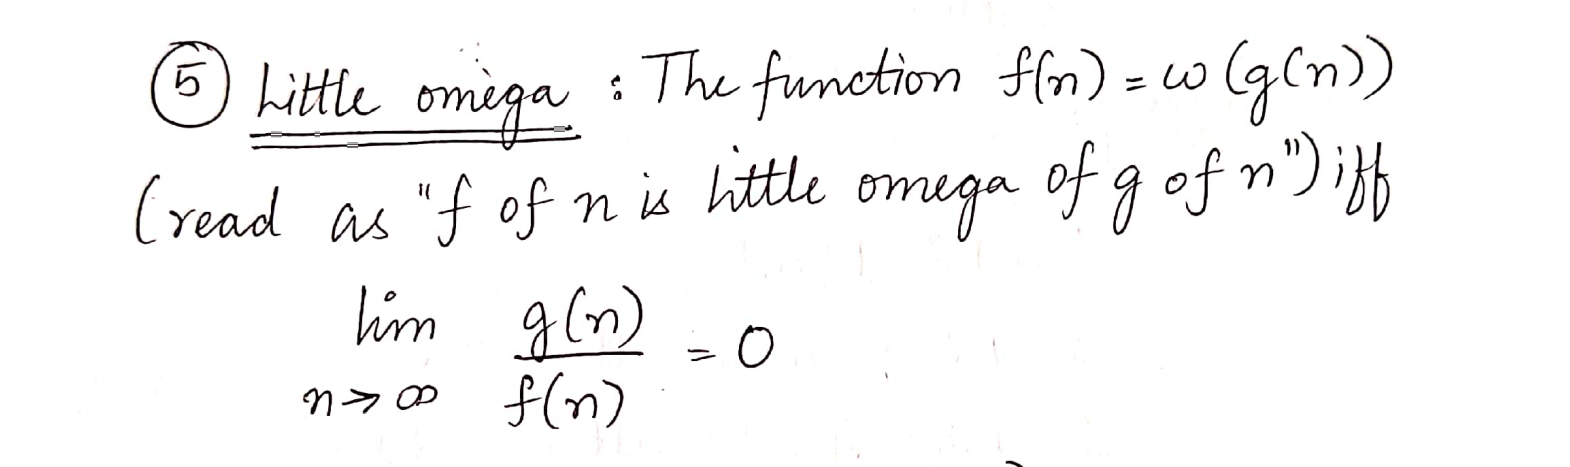 ⑤ Little omega : The function f(n) = ω (g(n))
(read as "f of n is little omega of g of n") iff
lim g(n)
n→∞ f(n) = 0